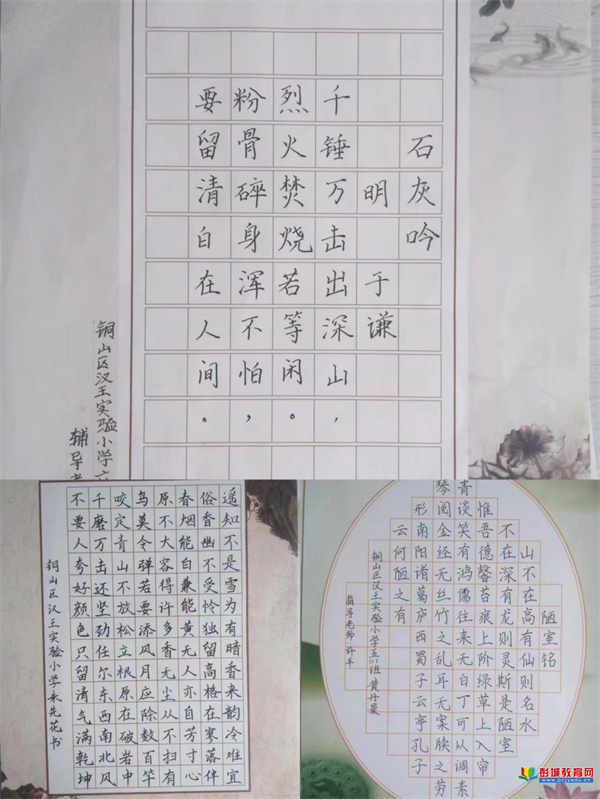 石灰吟
明 于谦
千锤万击出深山，
烈火焚烧若等闲。
粉骨碎身浑不怕，
要留清白在人间。
铜山区汉王实验小学六
辅导老
遥知不是雪为有暗香来韵冷难宜
俗香幽不受怜独留高格在寒落伴
春烟能自兼能黄无人亦自芳寸心
原不大容得许多香无尘从不扫有
乌莫令弹若要添风月应除数百竿
咬定青山不放松立根原在破岩中
千磨万击还坚劲任尔东西南北风
不要人夸好颜色只留清气满乾坤
铜山区汉王实验小学朱先花书
陋室铭
山不在高有仙则名水
不在深有龙则灵斯是陋室
惟吾德馨苔痕上阶绿草上入帘
青谈笑有鸿儒往来无白丁可以调素
琴阅金经无丝竹之乱耳无案牍之劳
形南阳诸葛庐西蜀子云亭孔子
云何陋之有
铜山区汉王实验小学五(1)班 黄丹晨
辅导老师：许丰
彭城教育网
pcjyedu.cn